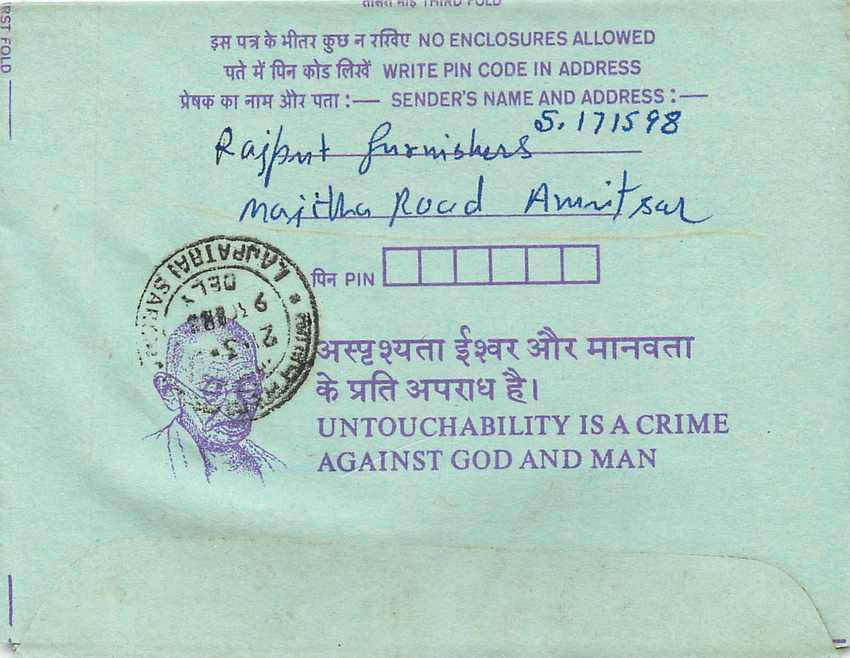 THIRD FOLD
FIRST FOLD
इस पत्र के भीतर कुछ न रखिए NO ENCLOSURES ALLOWED
पते में पिन कोड लिखें WRITE PIN CODE IN ADDRESS
प्रेषक का नाम और पता :— SENDER'S NAME AND ADDRESS :—
S. 171598
Rajput furnishers
Majitha Road Amritsar
पिन PIN
LAJPATRAI
DELY
अस्पृश्यता ईश्वर और मानवता
के प्रति अपराध है।
UNTOUCHABILITY IS A CRIME
AGAINST GOD AND MAN